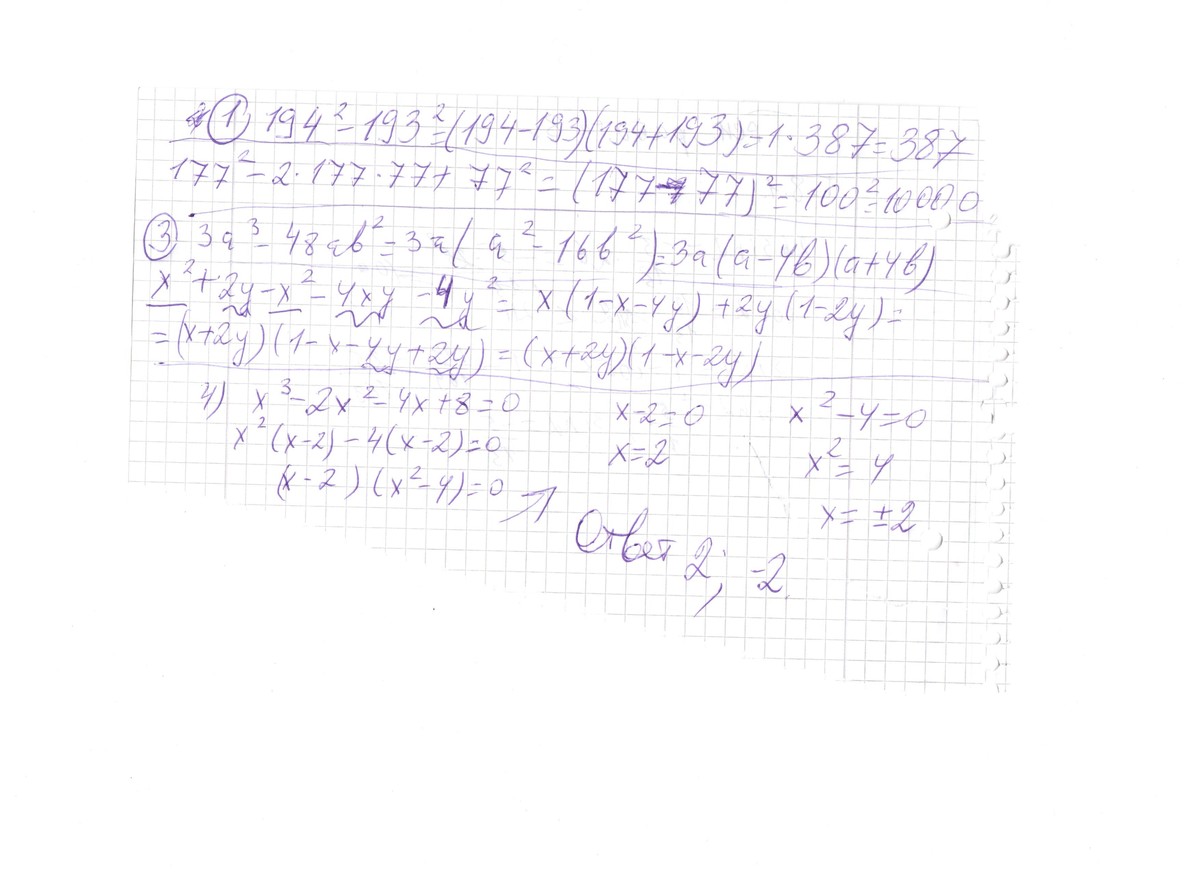 ① 194² - 193² = (194-193)(194+193) = 1·387 = 387
177² - 2·177·77 + 77² = (177-77)² = 100² = 10000
③ 3a³ - 48ab² = 3a(a² - 16b²) = 3a(a-4b)(a+4b)
x² + 2y - x² - 4xy - 4y² = x(1-x-4y) + 2y(1-2y) =
= (x+2y)(1-x-4y+2y) = (x+2y)(1-x-2y)
4) x³ - 2x² - 4x + 8 = 0 x-2=0 x² - 4 = 0
x²(x-2) - 4(x-2) = 0 x=2 x² = 4
(x-2)(x²-4) = 0 x = ±2
Ответ 2; -2